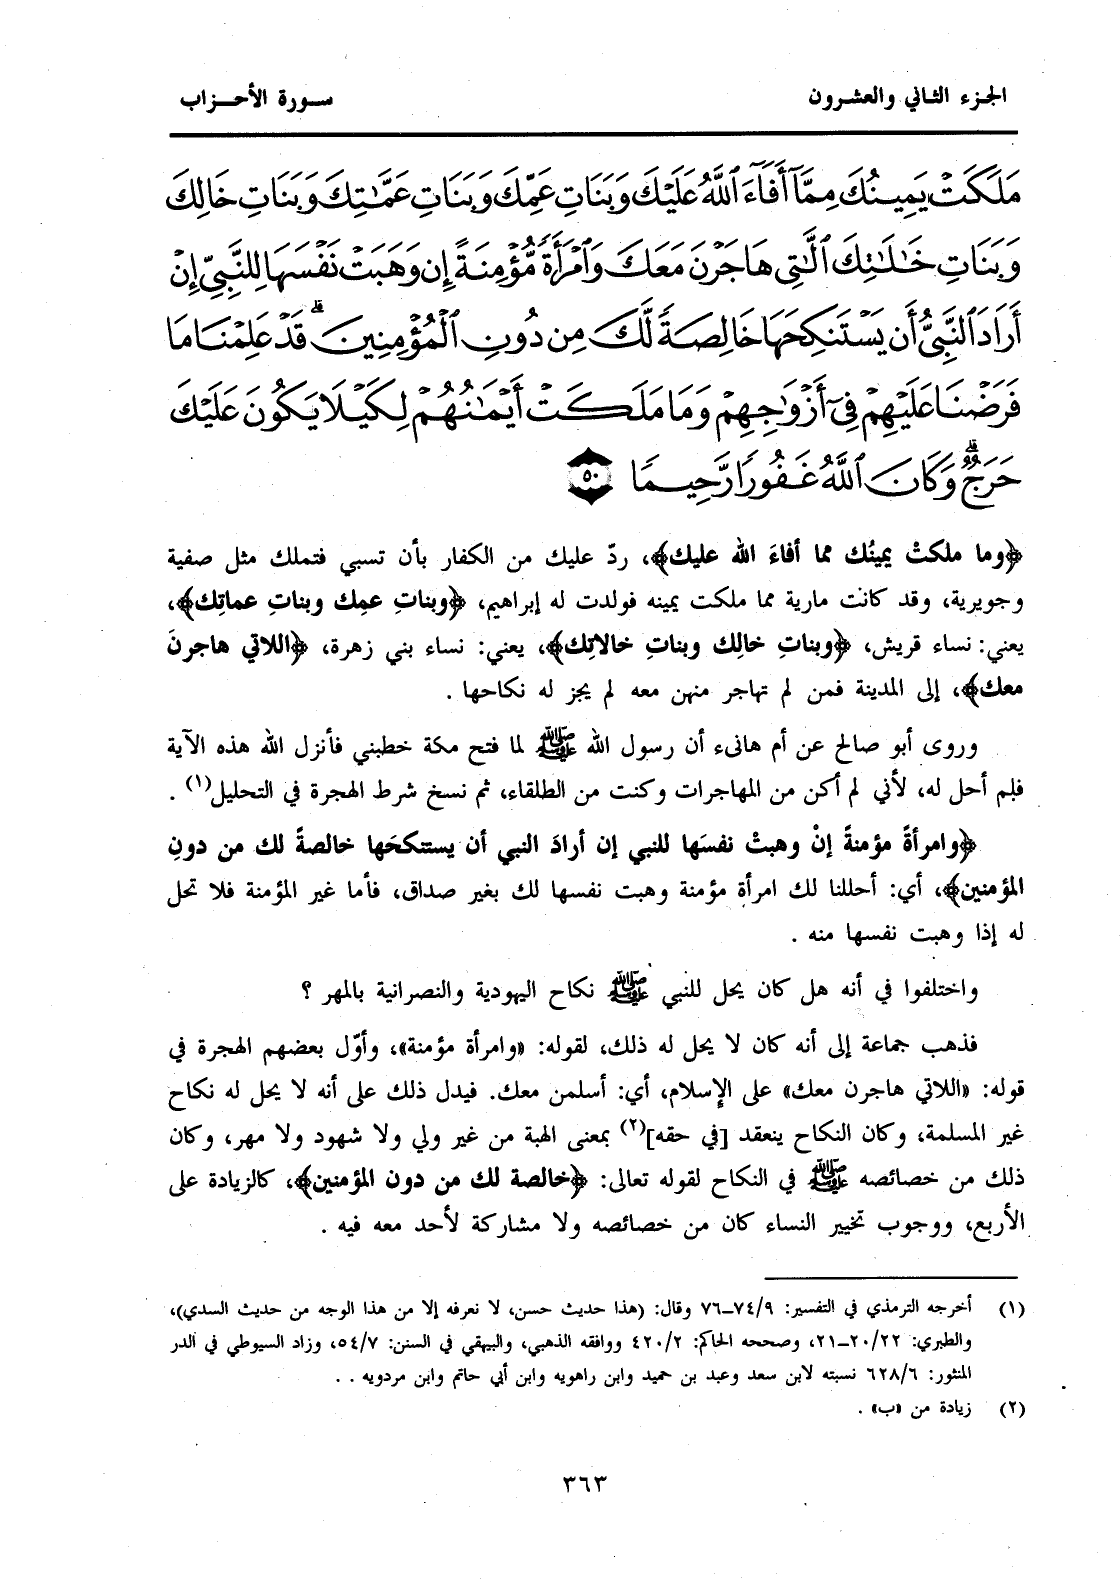 الجزء الثاني والعشرون
سورة الأحزاب
مَلَكَتْ يَمِينُكَ مِمَّآ أَفَآءَ ٱللَّهُ عَلَيْكَ وَبَنَاتِ عَمِّكَ وَبَنَاتِ عَمَّٰتِكَ وَبَنَاتِ خَالِكَ
وَبَنَاتِ خَٰلَٰتِكَ ٱلَّٰتِى هَاجَرْنَ مَعَكَ وَٱمْرَأَةً مُّؤْمِنَةً إِن وَهَبَتْ نَفْسَهَا لِلنَّبِىِّ إِنْ
أَرَادَ ٱلنَّبِىُّ أَن يَسْتَنكِحَهَا خَالِصَةً لَّكَ مِن دُونِ ٱلْمُؤْمِنِينَ ۗ قَدْ عَلِمْنَا مَا
فَرَضْنَا عَلَيْهِمْ فِىٓ أَزْوَٰجِهِمْ وَمَا مَلَكَتْ أَيْمَٰنُهُمْ لِكَيْلَا يَكُونَ عَلَيْكَ
حَرَجٌ ۗ وَكَانَ ٱللَّهُ غَفُورًا رَّحِيمًا ٥٠
﴿وما ملكتْ يمينُك مما أفاءَ الله عليك﴾، ردّ عليك من الكفار بأن تسبي فتملك مثل صفية
وجويرية، وقد كانت مارية مما ملكت يمينه فولدت له إبراهيم، ﴿وبناتِ عمِك وبناتِ عماتِك﴾،
يعني: نساء قريش، ﴿وبناتِ خالِك وبناتِ خالاتِك﴾، يعني: نساء بني زهرة، ﴿اللاتي هاجرنَ
معك﴾، إلى المدينة فمن لم تهاجر منهن معه لم يجز له نكاحها .
وروى أبو صالح عن أم هانىء أن رسول الله ﷺ لما فتح مكة خطبني فأنزل الله هذه الآية
فلم أحل له، لأني لم أكن من المهاجرات وكنت من الطلقاء، ثم نسخ شرط الهجرة في التحليل(١) .
﴿وامرأةً مؤمنةً إنْ وهبتْ نفسَها للنبي إن أرادَ النبي أن يستنكحَها خالصةً لك من دونِ
المؤمنين﴾، أي: أحللنا لك امرأة مؤمنة وهبت نفسها لك بغير صداق، فأما غير المؤمنة فلا تحل
له إذا وهبت نفسها منه .
واختلفوا في أنه هل كان يحل للنبي ﷺ نكاح اليهودية والنصرانية بالمهر ؟
فذهب جماعة إلى أنه كان لا يحل له ذلك، لقوله: «وامرأة مؤمنة»، وأوّل بعضهم الهجرة في
قوله: «اللاتي هاجرن معك» على الإسلام، أي: أسلمن معك. فيدل ذلك على أنه لا يحل له نكاح
غير المسلمة، وكان النكاح ينعقد [في حقه](٢) بمعنى الهبة من غير ولي ولا شهود ولا مهر، وكان
ذلك من خصائصه ﷺ في النكاح لقوله تعالى: ﴿خالصة لك من دون المؤمنين﴾، كالزيادة على
الأربع، ووجوب تخيير النساء كان من خصائصه ولا مشاركة لأحد معه فيه .
(١) أخرجه الترمذي في التفسير: ٩/٧٤_٧٦ وقال: (هذا حديث حسن، لا نعرفه إلا من هذا الوجه من حديث السدي)،
والطبري: ٢٢/٢٠_٢١، وصححه الحاكم: ٢/٤٢٠ ووافقه الذهبي، والبيهقي في السنن: ٧/٥٤، وزاد السيوطي في الدر
المنثور: ٦/٦٢٨ نسبته لابن سعد وعبد بن حميد وابن راهويه وابن أبي حاتم وابن مردويه . .
(٢) زيادة من «ب» .
٣٦٣